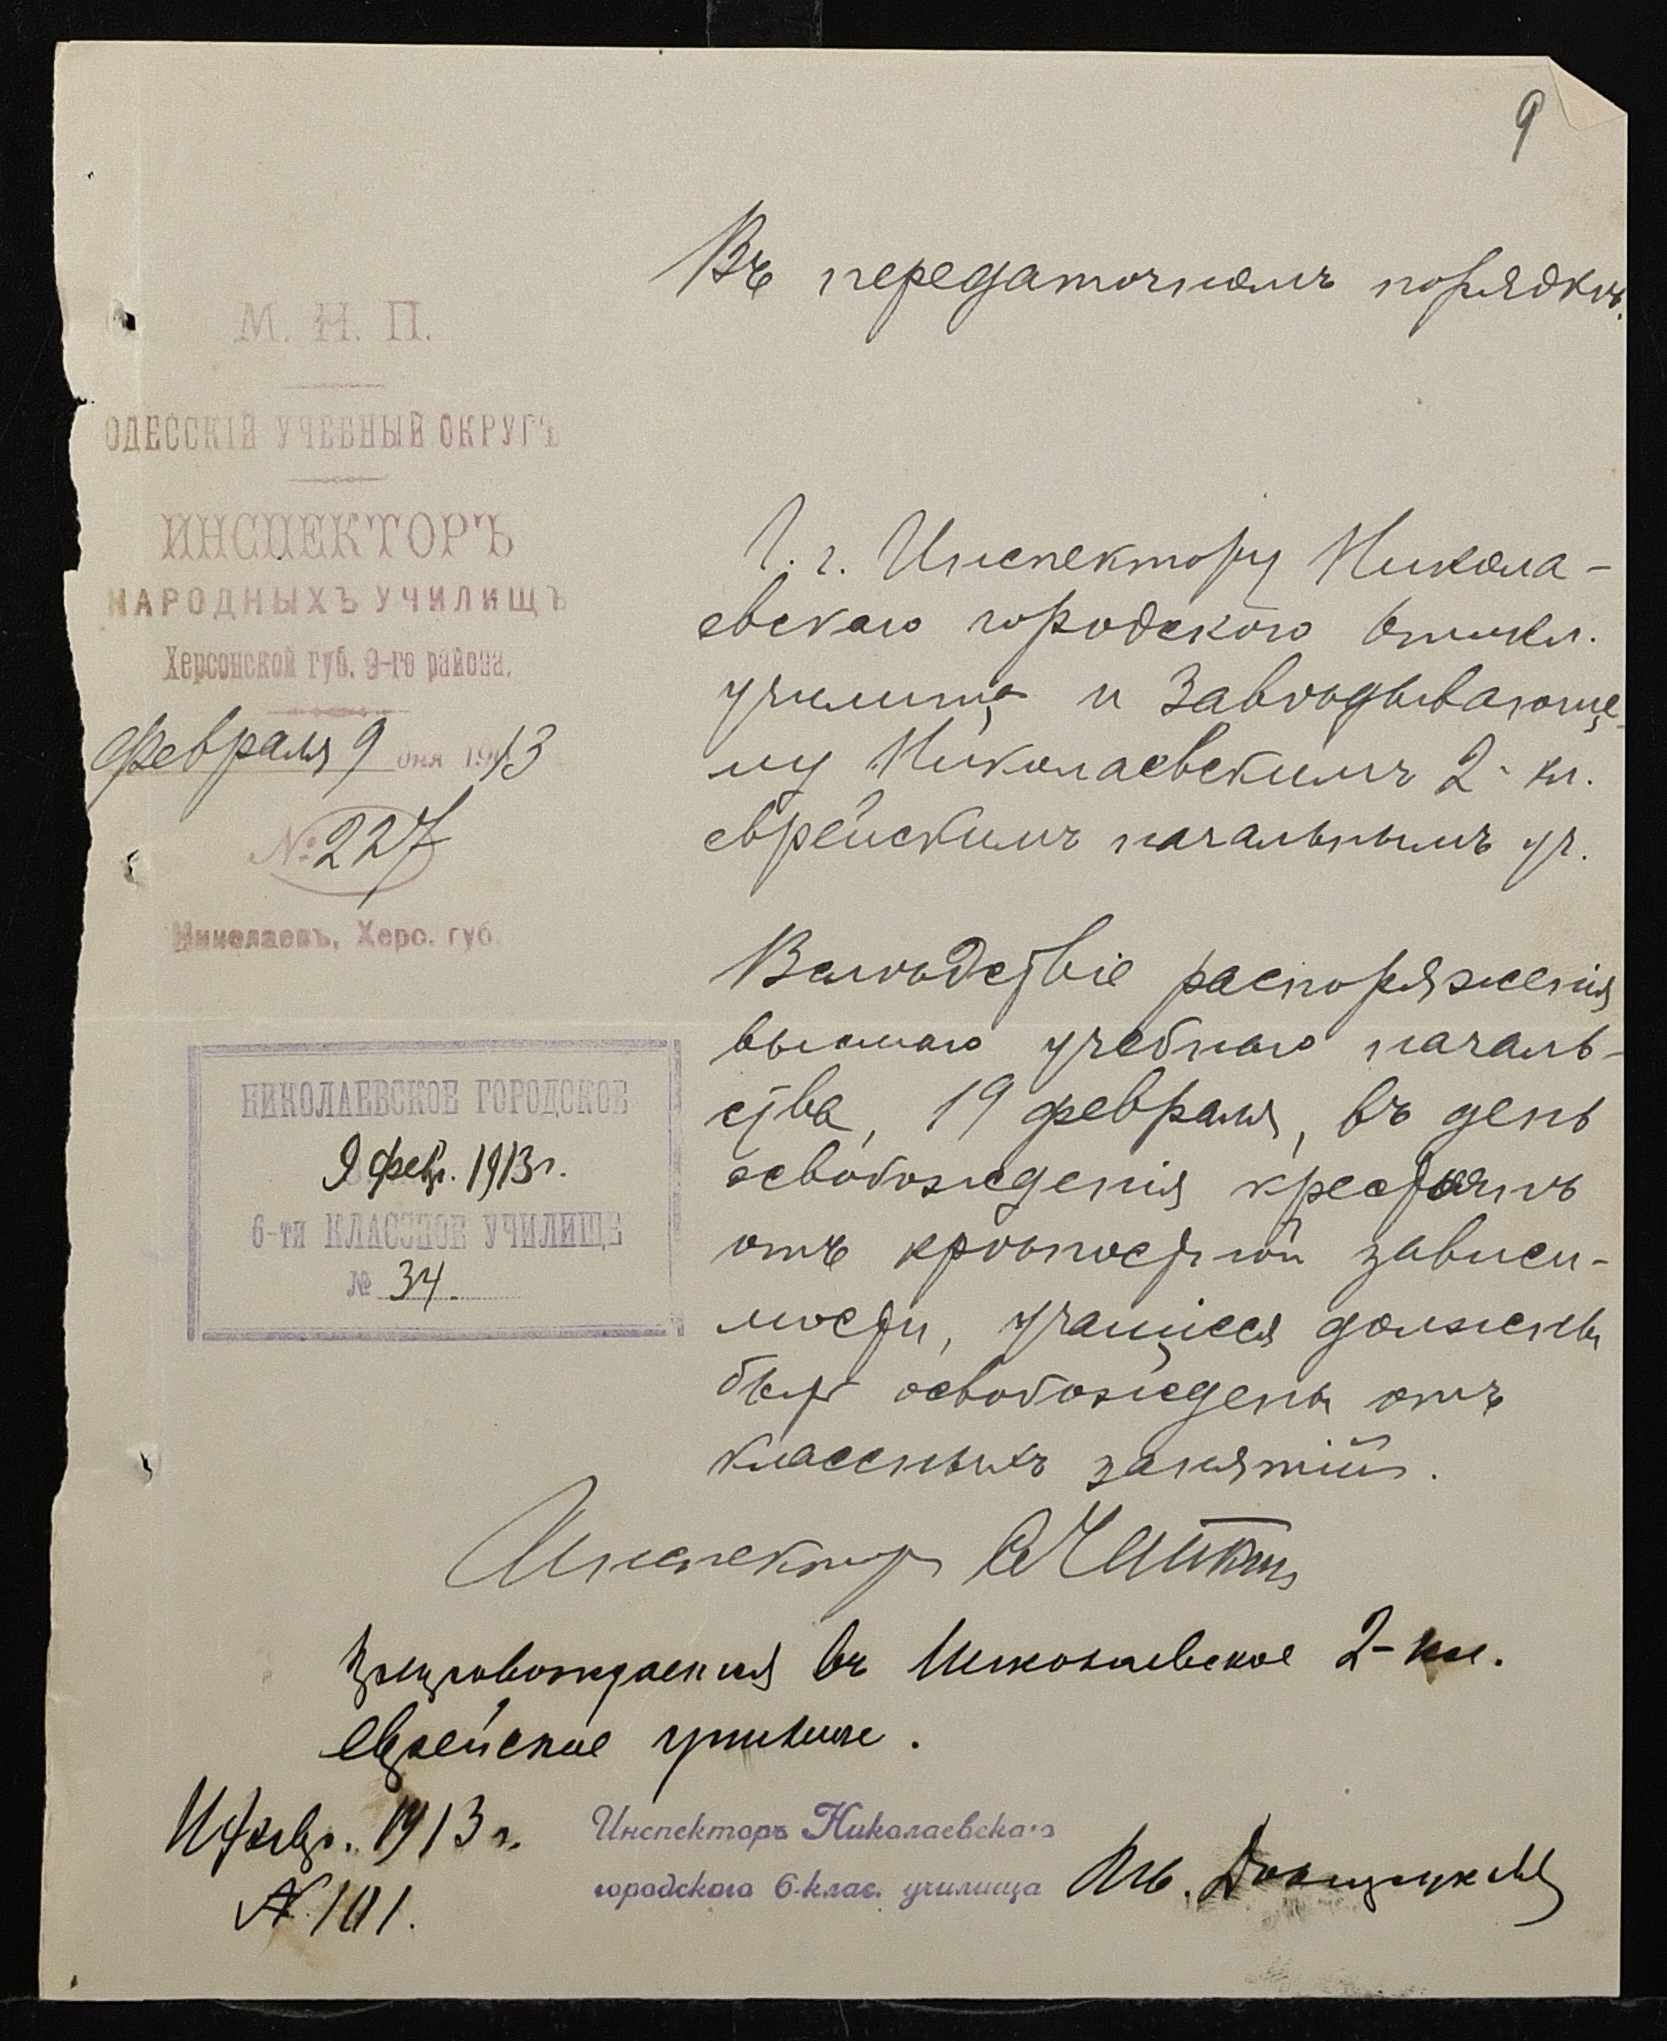 9
Въ передаточномъ порядкѣ.
М. Н. П.
ОДЕССКІЙ УЧЕБНЫЙ ОКРУГЪ
ИНСПЕКТОРЪ
НАРОДНЫХЪ УЧИЛИЩЪ
Херсонской губ. 9-го района.
Февраля 9 дня 1913
№ 227
Николаевъ, Херс. губ.
Г. г. Инспектору Никола-
евскаго городского 6тикл.
училища и Завѣдывающе-
му Николаевскимъ 2-кл.
еврейскимъ начальнымъ уч.
Вслѣдствіе распоряженія
высшаго учебнаго началь-
ства, 19 февраля, въ день
освобожденія крестьянъ
отъ крѣпостной зависи-
мости, учащіеся должны
быть освобождены отъ
классныхъ занятій.
НИКОЛАЕВСКОЕ ГОРОДСКОЕ
9 февр. 1913 г.
6-ти КЛАССНОЕ УЧИЛИЩЕ
№ 34.
Инспекторъ
Препровождается въ Николаевское 2-кл.
еврейское училище.
11 февр. 1913 г.
№ 101.
Инспекторъ Николаевскаго
городского 6-клас. училища